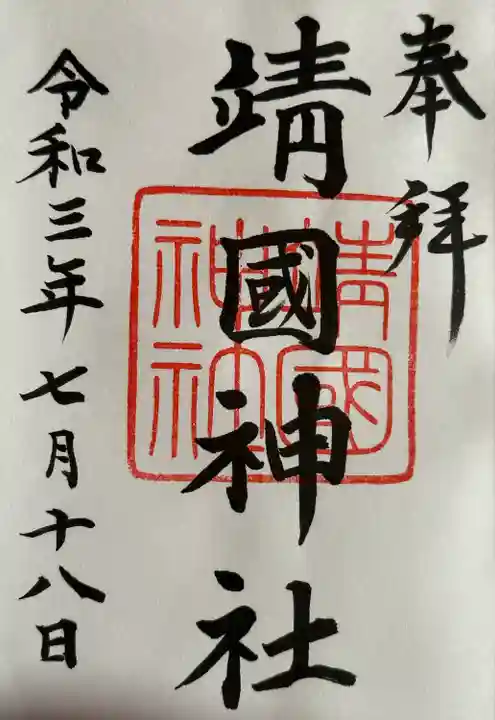 奉拝
靖國神社
靖國
神社
令和三年七月十八日